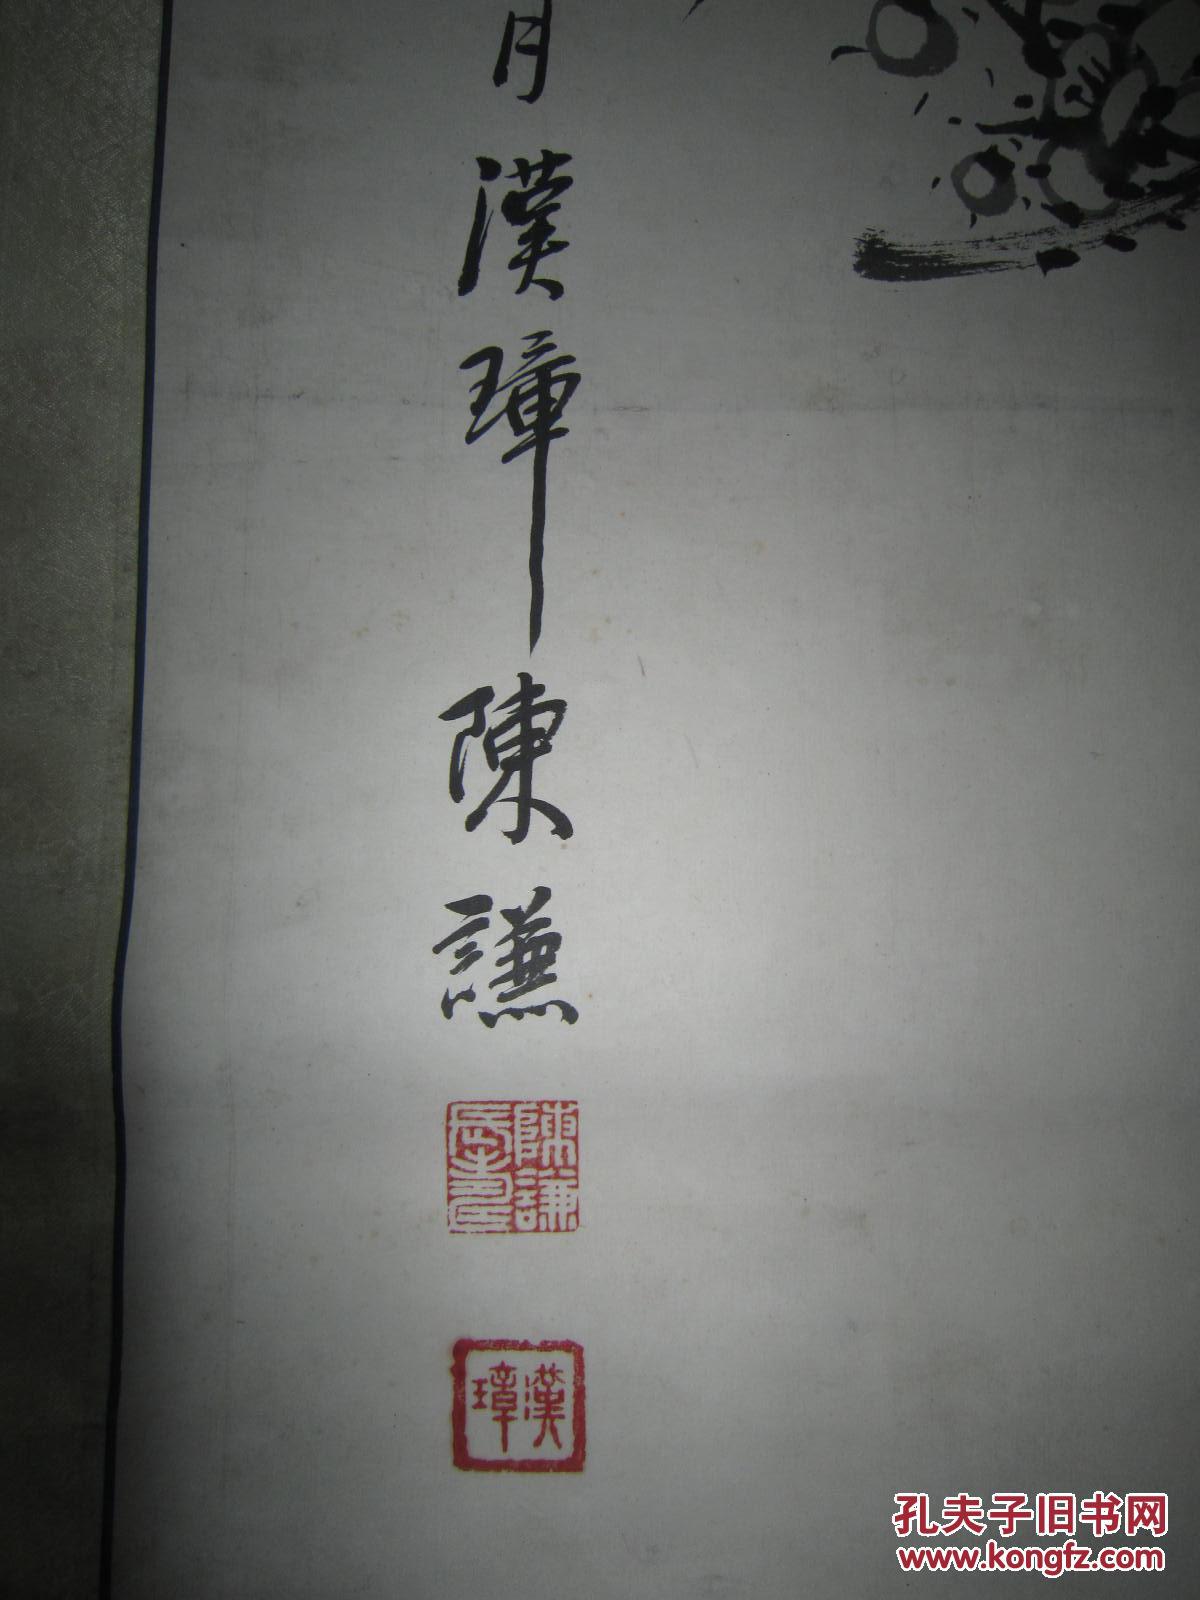 月漢璋陳謙
陳謙
漢璋
孔夫子旧书网
www.kongfz.com